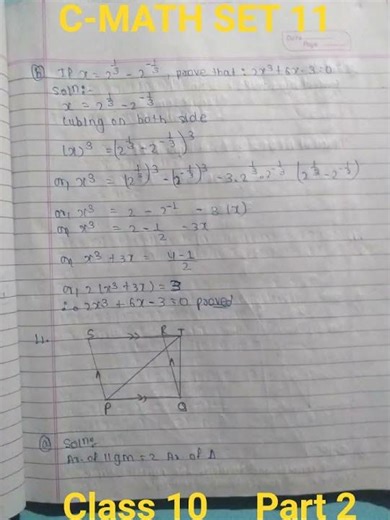 C-MATH SET 11
Date
Page
(B) If x = 2^⅓ - 2^-⅓, prove that: 2x³+6x-3=0
Soln:-
x = 2^⅓ - 2^-⅓
Cubing on both side
(x)³ = (2^⅓ - 2^-⅓)³
or, x³ = (2^⅓)³ - (2^-⅓)³ - 3.2^⅓.2^-⅓ (2^⅓ - 2^-⅓)
or, x³ = 2 - 2^-1 - 3(x)
or x³ = 2 - 1/2 - 3x
or x³ + 3x = 4-1/2
or, 2(x³+3x) = 3
∴ 2x³ + 6x - 3 = 0 proved
11.
S R T
P Q
(a) Soln:
Ar. of llgm = 2 Ar of Δ
Class 10 Part 2